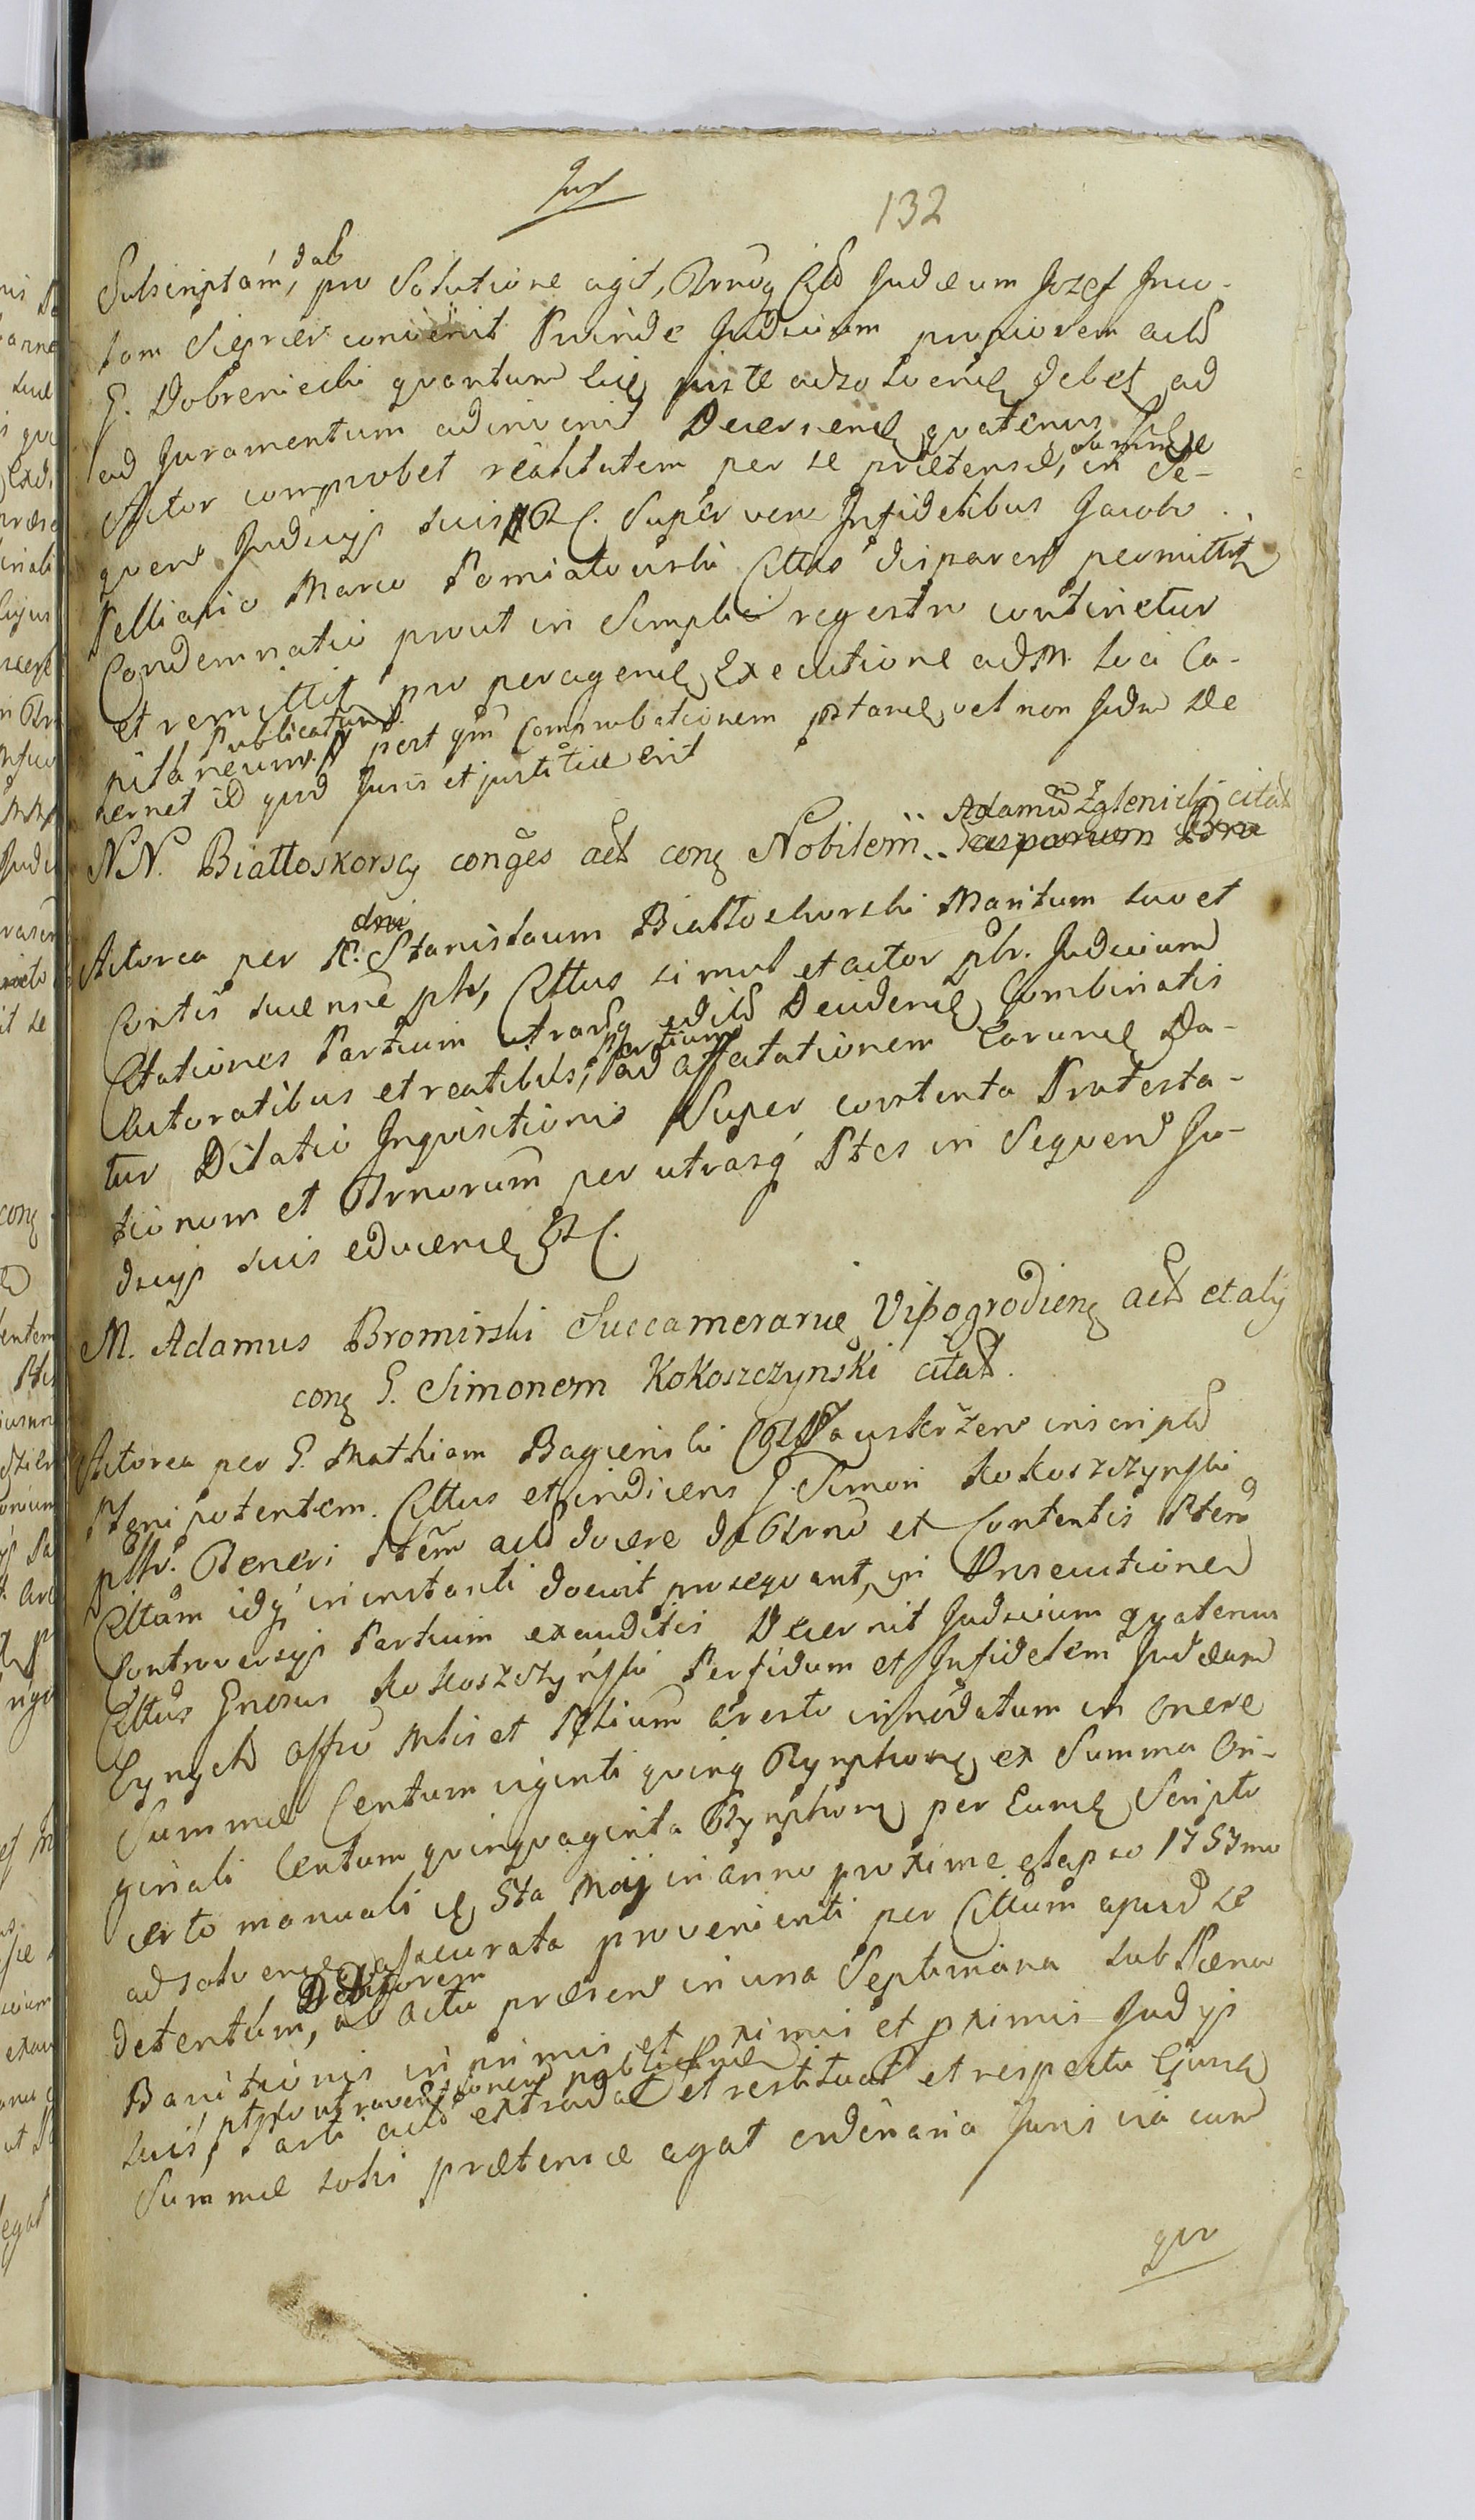 132
Subscriptam, pro Solutione agit, Judæum Jozef Inco-
lam Sieprcer convenit Proinde Judicium propiorem actt
G. Dobreniecki quantum juste adzolvend debet ad
ad Juramentum adinvenit Decersend quatenus
Actor comprobet realitatem per se prætensæ, summæ in Se-
quen Judicijs suis Super vero Infidelibus Jacobo
Pelliario Marco Poniatowski Cittus disparen permittit
Condemnatio prout in Simplici regestro continetur
et remittit pro peragend Executione adm. Loci Ca-
pitaneum. Publicatum post qm Comprobationem pstand vel non Judm De
cernet id quod Juris et justitiæ erit
NN. Białłoskorscy conges actt cong Nobilem.. Adamu Zglenicki citat
Actorea per Stanislaum Białłoskorski Maritum suo et
Contis suæ nne ptr, Cittus simul et actor ptr. Judicium
Citationes Partium utrarsq edits Decidend Combinatis
Actoratibus et reatibus, partium ad affectationem Earund Da-
tur Dilatio Inquisitionis Super contenta Protesta-
tionum et Brnorum per utrasq Ptes in Sequend Ju-
dicijs suis educend
M. Adamus Bromirski Succamerariæ Vissogrodieng actt et alij
cong G. Simonem Kokoszczynski citatt.
Actorea per G. Mathiam Bagienski inscripts
Plenipotentem. Cittus et indicens G. Simon Kokoszczynski
pthr. Reneri Ptem actt docere de Brno et Contentis Ptem
Cittam idq in instanti docuit prosequunt, in Prosecutione
Controversijs Partium exauditis Decernit Judicium quatenus
Cittus Gnosus Kokoszczynski Perfidum et Infidelem Judæum
Eynych offo Ntis et Ptium Aresto innodatum in onere
Summæ Centum viginti quinq Rynphong ex Summa Ori-
ginali Centum quinquaginta Rynphong per Eund Scripto
certo manuali 5ta Maij in anno proxime elapso 1757mo
adsolvend assecurata provenienti per Cittum apud se
detentum, Debitorem ab actu præsen in una Septimana sub Pæna
Banitionis in primis et pximis et pximis Judijs
suis, Parti actt extradat et restituat et respectu Ejusd
Summæ sohi prætensæ agat ordinaria Juris via cum
quo